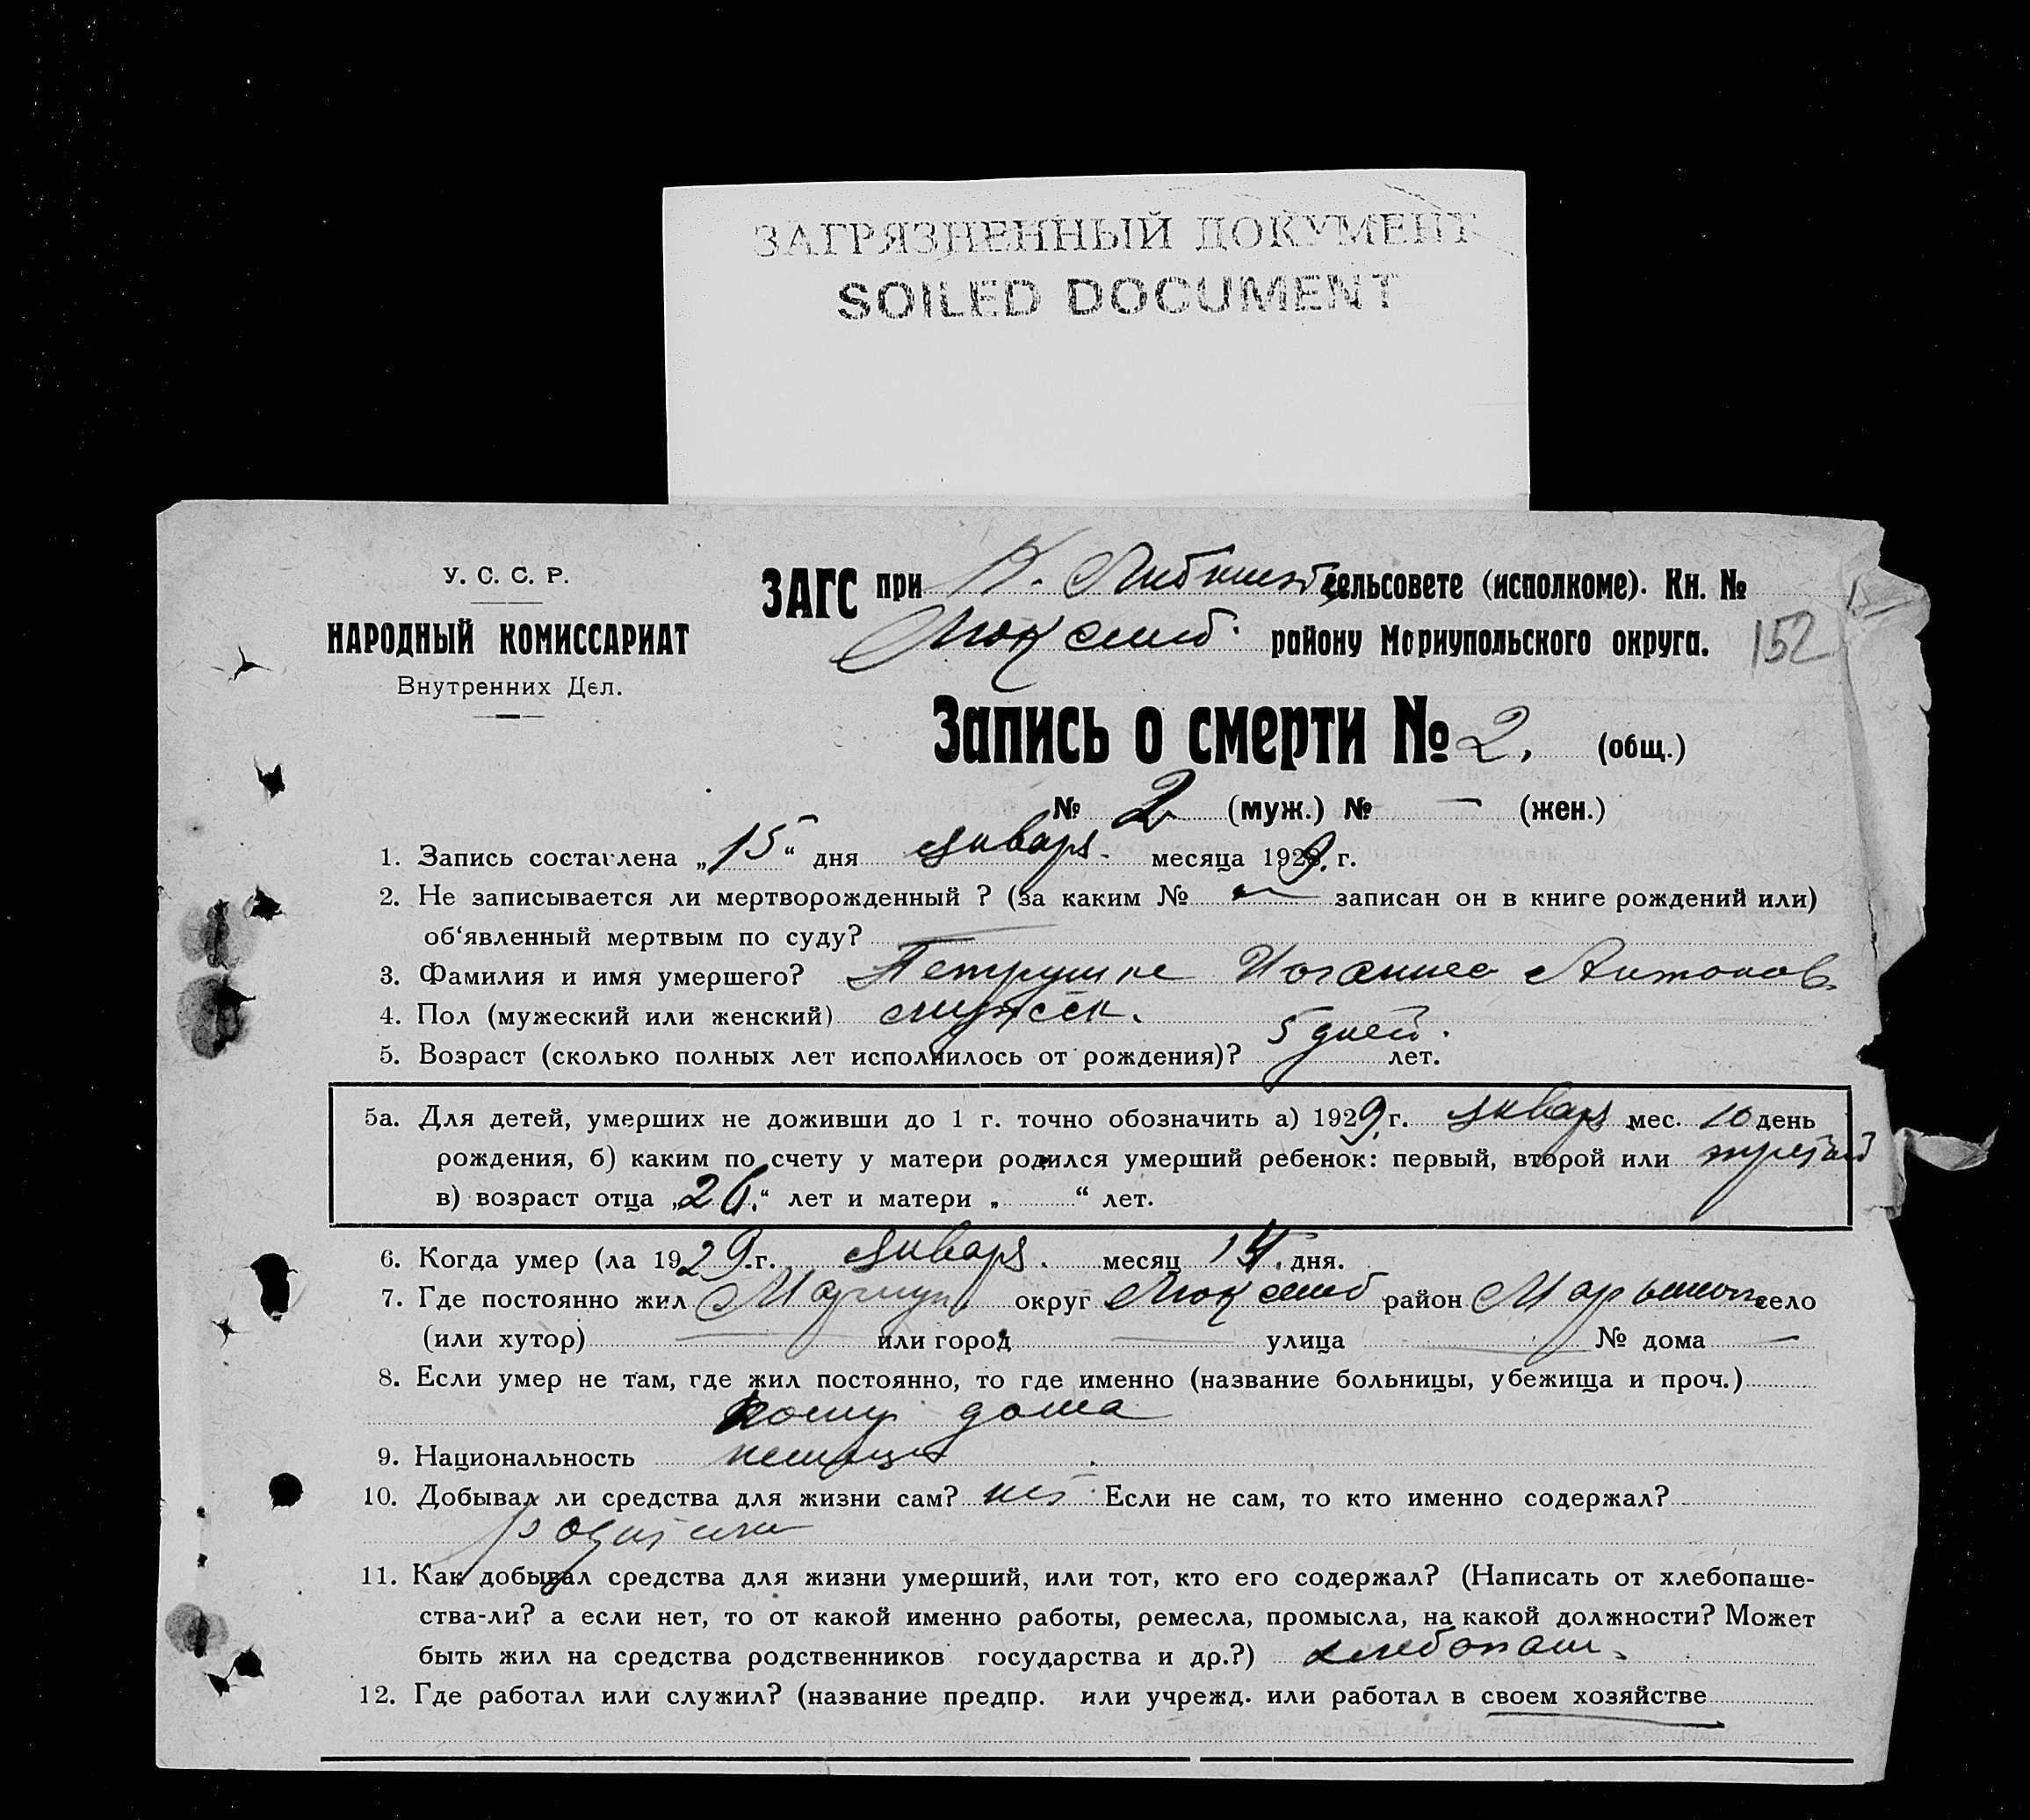 ЗАГРЯЗНЕННЫЙ ДОКУМЕНТ
SOILED DOCUMENT
У. С. С. Р.
НАРОДНЫЙ КОМИССАРИАТ
Внутренних Дел.
ЗАГС при К. сельсовете (исполкоме). Кн. №
Люксемб. району Мариупольского округа. 152
Запись о смерти № 2. (общ.)
№ 2 (муж.) № — (жен.)
1. Запись составлена „15“ дня январ. месяца 1929. г.
2. Не записывается ли мертворожденный ? (за каким № — записан он в книге рождений или)
об'явленный мертвым по суду? —
3. Фамилия и имя умершего? Петрушке Иоганнес Антонов.
4. Пол (мужеский или женский) мужеск.
5. Возраст (сколько полных лет исполнилось от рождения)? 5 дней. лет.
5а. Для детей, умерших не доживши до 1 г. точно обозначить а) 1929. г. январ мес. 10 день
рождения, б) каким по счету у матери родился умерший ребенок: первый, второй или третий
в) возраст отца „26.“ лет и матери „ “ лет.
6. Когда умер (ла 1929.г. январ. месяц 14. дня.
7. Где постоянно жил Мариуп. округ Люксемб район село
(или хутор) — или город — улица — № дома —
8. Если умер не там, где жил постоянно, то где именно (название больницы, убежища и проч.)
дома
9. Национальность немец
10. Добывал ли средства для жизни сам? нет Если не сам, то кто именно содержал?
родители
11. Как добывал средства для жизни умерший, или тот, кто его содержал? (Написать от хлебопаше-
ства-ли? а если нет, то от какой именно работы, ремесла, промысла, на какой должности? Может
быть жил на средства родственников государства и др.?) хлебопаш.
12. Где работал или служил? (название предпр. или учрежд. или работал в своем хозяйстве